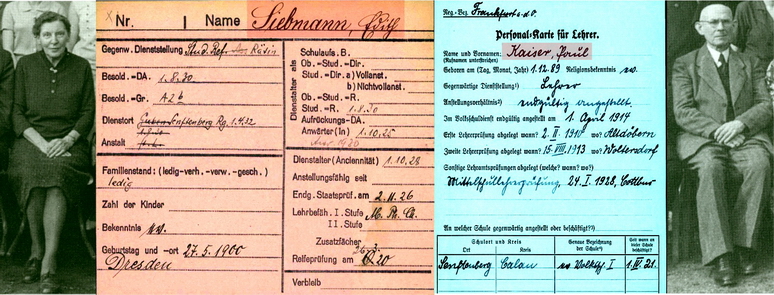 Nr. Name Siebmann, Edith
Gegenw. Dienststellung Stud. Ref. Rätin
Besold.-DA. 1.8.30
Besold.-Gr. A2b
Dienstort Senftenberg Rg. 1.4.32
Anstalt
Familienstand: (ledig-verh.-verw.-gesch.)
ledig
Zahl der Kinder
Bekenntnis ev.
Geburtstag und -ort 27.5.1900
Dresden
Dienstalter als
Schulaufs. B.
Ob.-Stud.-Dir.
Stud.-Dir. a) Vollanst.
b) Nichtvollanst.
Ob.-Stud.-R.
Stud.-R. 1.8.30
Aufrückungs-DA.
Anwärter (in) 1.10.25
Dienstalter (Anciennität) 1.10.28
Anstellungsfähig seit
Endg. Staatsprüf. am 2.11.26
Lehrbefäh. I. Stufe M. Ph. Ch.
II. Stufe
Zusatzfächer
Reifeprüfung am 20
Verbleib
Reg.-Bez. Frankfurt a.d.O.
Personal-Karte für Lehrer.
Name und Vornamen: Kaiser, Paul
(Rufnamen unterstreichen)
Geboren am (Tag, Monat, Jahr) 1.12.89 Religionsbekenntnis ev.
Gegenwärtige Dienststellung? Lehrer
Anstellungsverhältnis? endgültig angestellt.
Im Volksschuldienst endgültig angestellt am 1. April 1914
Erste Lehrerprüfung abgelegt wann? 2. II. 1910 wo? Altdöbern
Zweite Lehrerprüfung abgelegt wann? 15. VIII. 1913 wo? Woltersdorf
Sonstige Lehramtsprüfungen abgelegt (welche? wann? wo?)
Mittelschullehrerprüfung 24. I. 1928, Cottbus
An welcher Schule gegenwärtig angestellt oder beschäftigt?
Schulort und Kreis
Ort Kreis
Genaue Bezeichnung der Schule
Seit wann an dieser Schule beschäftigt?
Senftenberg Calau ev Volkssch. I 1. IV. 21.